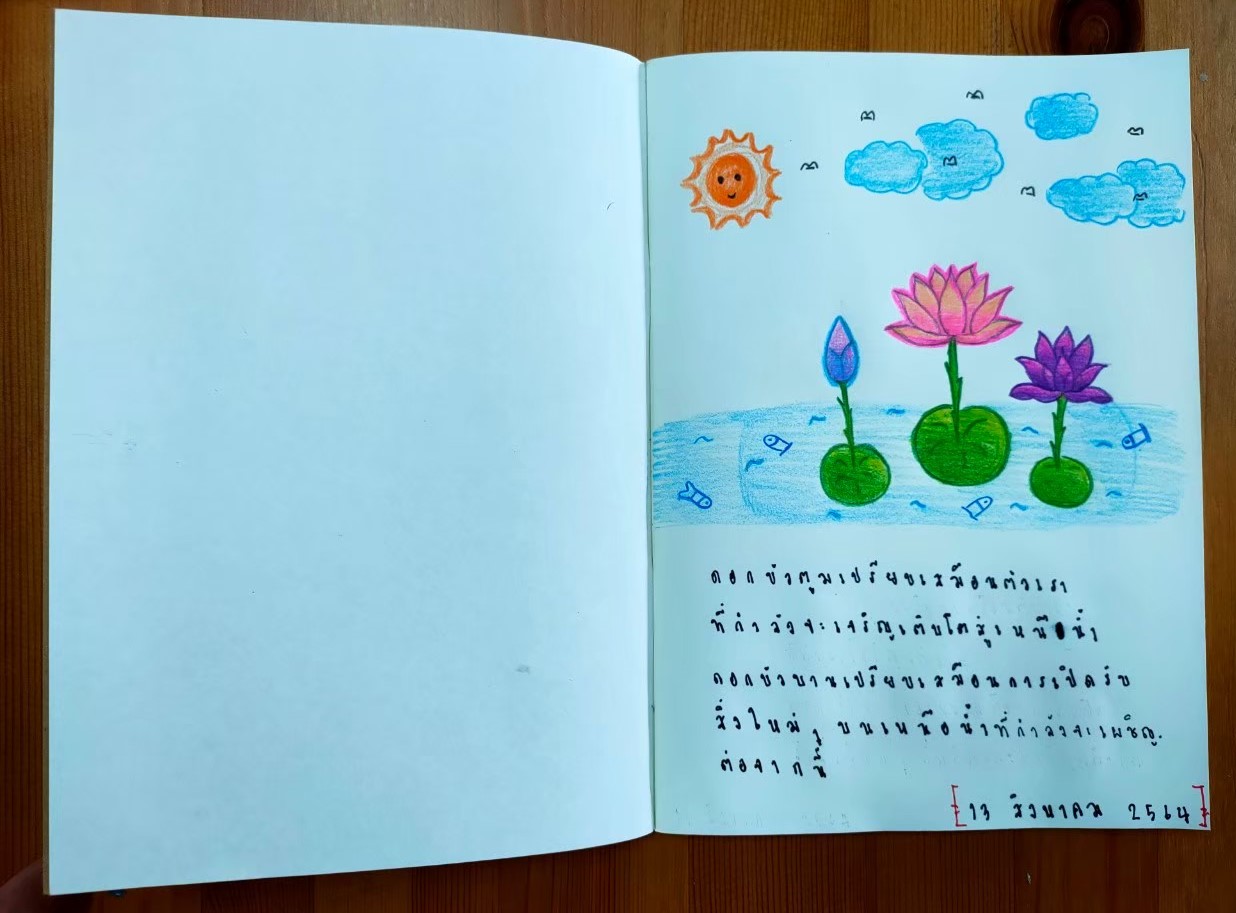 ดอกบัวตูมเปรียบเสมือนตัวเรา
ที่กำลังจะเจริญเติบโตสู่เหนือน้ำ
ดอกบัวบานเปรียบเสมือนการเปิดรับ
สิ่งใหม่ๆ บนเหนือน้ำที่กำลังจะเผชิญ
ต่อจากนี้
[13 สิงหาคม 2564]